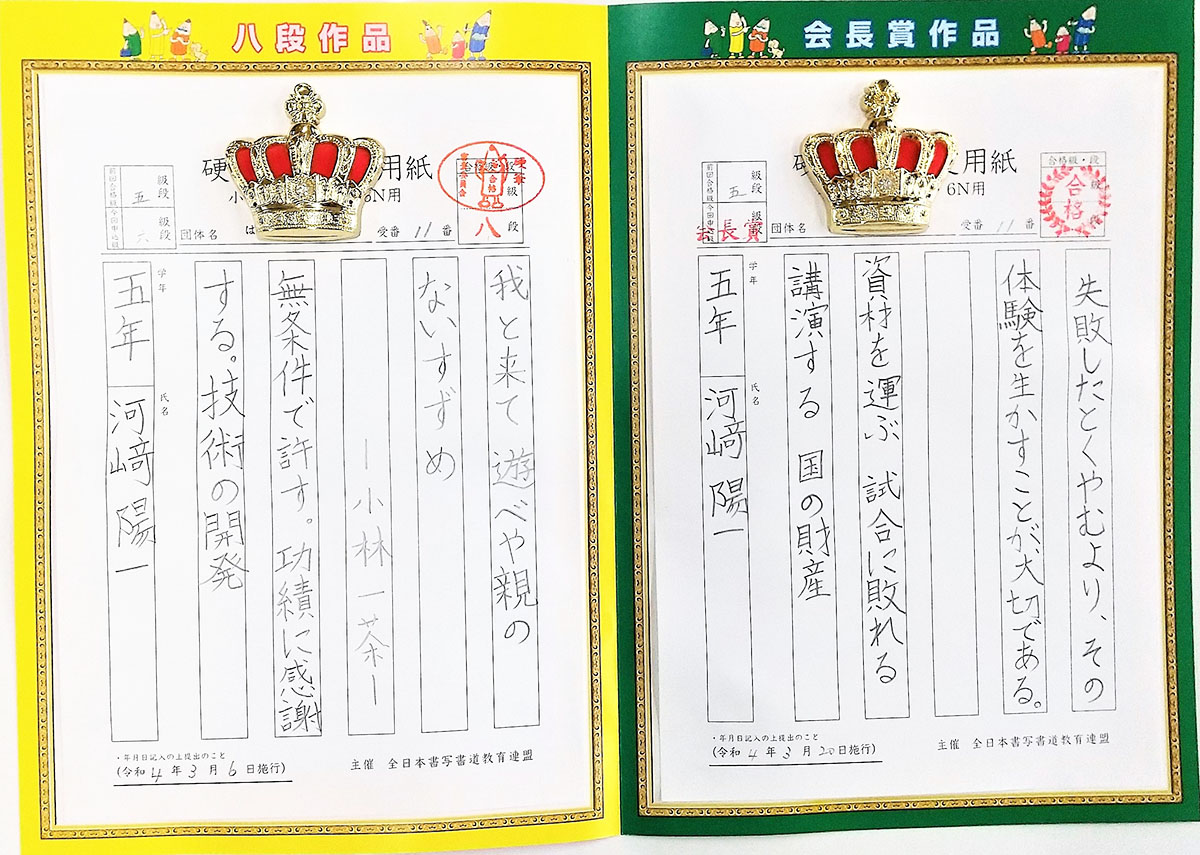 八段作品
硬 用紙
小 6N用
前回合格級 五 級段
今回申込級 六 級段
団体名 は
受番 11 番
合格級・段
八 級段
硬筆
合格
審査委員会
我と来て 遊べや親の
ないすずめ
ー小林一茶ー
無条件で許す。功績に感謝
する。技術の開発
学年
五年
氏名
河﨑陽一
・年月日記入の上提出のこと
(令和4年3月6日施行)
主催 全日本書写書道教育連盟
会長賞作品
硬 用紙
6N用
前回合格級 五 級段
今回申込級 級段
会長賞
団体名
受番 11 番
合格級・段
級
合格
失敗したとくやむより、その
体験を生かすことが大切である。
資材を運ぶ 試合に敗れる
講演する 国の財産
学年
五年
氏名
河﨑陽一
・年月日記入の上提出のこと
(令和4年3月20日施行)
主催 全日本書写書道教育連盟